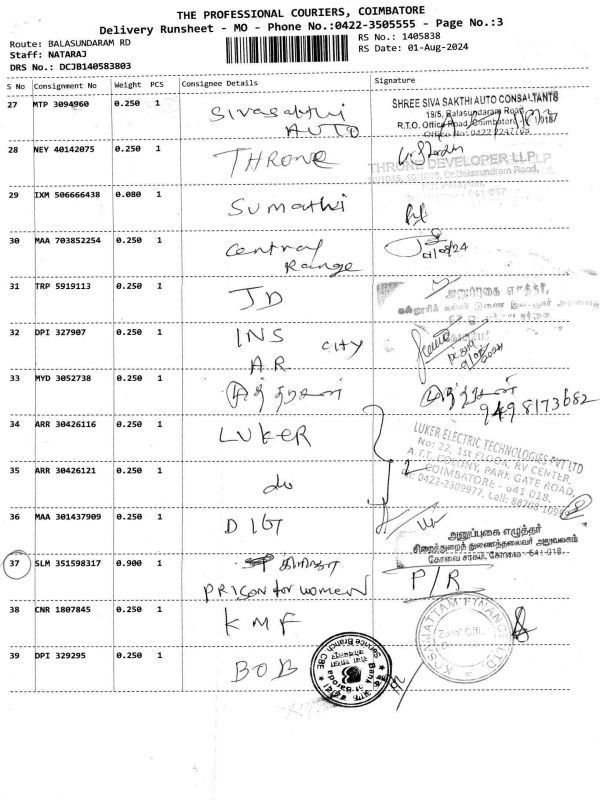 THE PROFESSIONAL COURIERS, COIMBATORE
Delivery Runsheet - MO - Phone No.:0422-3505555 - Page No.:3
Route: BALASUNDARAM RD
RS No.: 1405838
Staff: NATARAJ
RS Date: 01-Aug-2024
DRS No.: DCJB140583803
S No Consignment No Weight PCS Consignee Details Signature
27 MTP 3094960 0.250 1 Sivasakthi AUTO
SHREE SIVA SAKTHI AUTO CONSALTANTS
19/5, Balasundaram Road
R.T.O. Office Road, Coimbatore
28 NEY 40142075 0.250 1 THRONE
THRONE DEVELOPER LLP
Dr.Balasundram Road,
29 IXM 506666438 0.080 1 Sumathi
30 MAA 703852254 0.250 1 Central Range
31 TRP 5919113 0.250 1 JD
32 DPI 327907 0.250 1 INS CITY AR
33 MYD 3052738 0.250 1
9498173682
34 ARR 30426116 0.250 1 LUKER
LUKER ELECTRIC TECHNOLOGIES PVT LTD
No: 22, 1st FLOOR, RV CENTER,
A.T.T. COLONY, PARK GATE ROAD,
COIMBATORE - 641 018.
Ph: 0422-2309977, Cell:
35 ARR 30426121 0.250 1 do
36 MAA 301437909 0.250 1 DIG
அனுப்புகை எழுத்தர்
சிறைத்துறை துணைத்தலைவர் அலுவலகம்
கோவை சரகம், கோவை - 641 018.
37 SLM 351598317 0.900 1
PRISON for women P/R
38 CNR 1807845 0.250 1 KMF
KOSAMATTAM FINANCE LTD
Zonal Offi
39 DPI 329295 0.250 1 BOB
Bank of Baroda
Service Branch, CBE